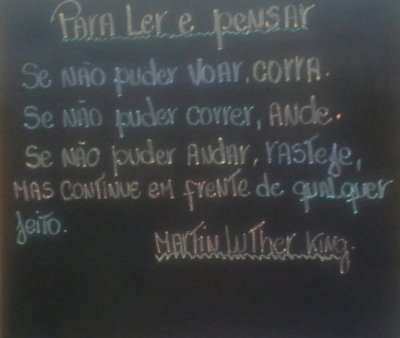 Para Ler e pensar
Se não puder voar, corra.
Se não puder correr, ande.
Se não puder andar, rasteje,
mas continue em frente de qualquer
jeito.
Martin Luther King.